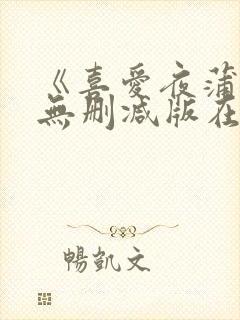 《喜愛夜蒲
無刪減版在
暢凱文